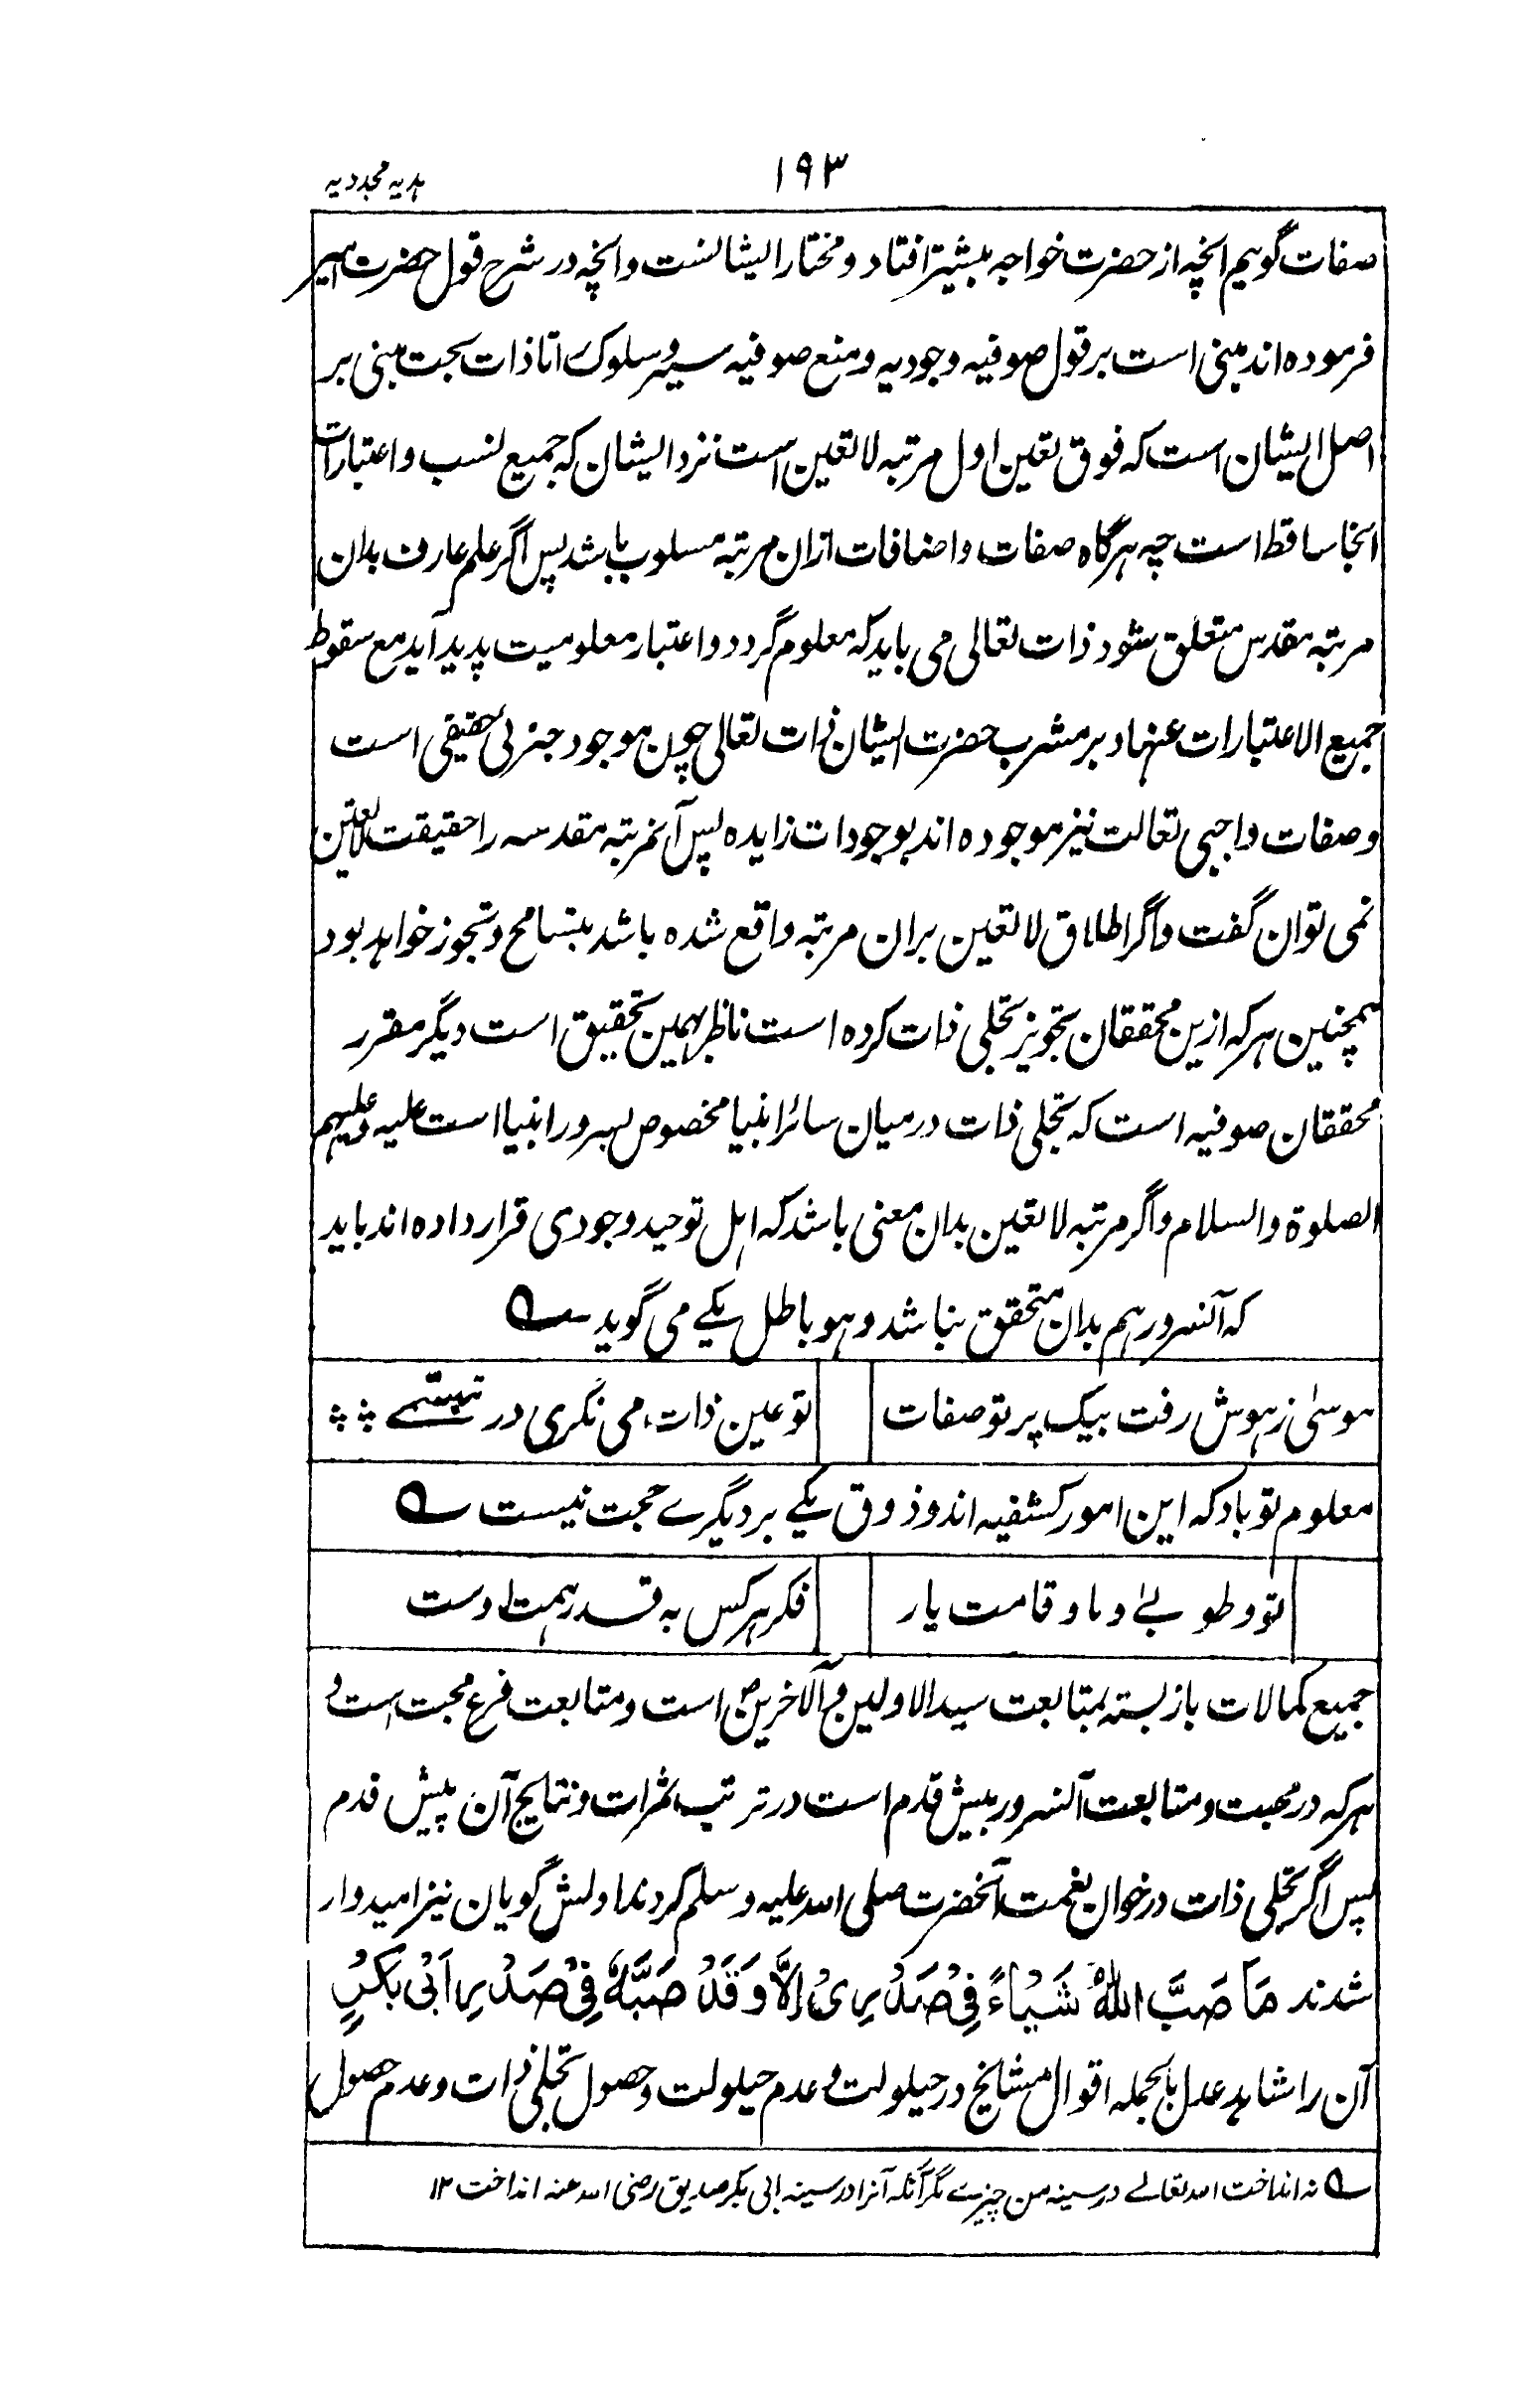 ۱۹۳
ہدیہ مجددیہ
صفات گوییم انچہ از حضرت خواجہ بیشتر افتاد و مختار ایشانست و انچہ در شرح قول حضرت امیر
فرمودہ اند مبنی است بر قول صوفیہ وجودیہ و منع صوفیہ سیر و سلوک را تا ذات بحت مبنی بر
اصل ایشان است کہ فوق تعین اول مرتبہ لا تعین است نزد ایشان کہ جمیع نسب و اعتبارات
انجا ساقط است چہ ہرگاہ صفات و اضافات ازان مرتبہ مسلوب باشد پس اگر علم عارف بدان
مرتبہ مقدس متعلق شود ذات تعالی می باید کہ معلوم گردد و اعتبار معلومیت پدید آید مع سقوط
جمیع الاعتبارات عنہا و بر مشرب حضرت ایشان ذات تعالی چون موجود جزئی حقیقی است
و صفات واجبی تعالت نیز موجودہ اند بوجودات زایدہ پس آنمرتبہ مقدسہ را حقیقت لاتعین
نمی توان گفت و اگر اطلاق لا تعین بران مرتبہ واقع شدہ باشد بتسامح و تجوز خواہد بود
ہمچنین ہر کہ ازین محققان تجویز تجلی ذات کردہ است ناظر بہمین تحقیق است دیگر مقرر
محققان صوفیہ است کہ تجلی ذات درمیان سائر انبیا مخصوص بسرور انبیا است علیہ و علیہم
الصلوة والسلام و اگر مرتبہ لا تعین بدان معنی باشد کہ اہل توحید وجودی قرار دادہ اند باید
کہ آنسرور ہم بدان متحقق نباشد و ہو باطل یکے می گوید ؎
موسیٰ ز ہوش رفت بیک پرتو صفات
تو عین ذات، می نگری در تبسمے
معلوم تو باد کہ این امور کشفیہ اند و ذوق یکے بر دیگرے حجت نیست ؎
تو و طوبےٰ و ما و قامت یار
فکر ہر کس بہ قدر ہمت اوست
جمیع کمالات باز بستہ بمتابعت سید الاولین و الآخرین است و متابعت فرع محبت است و
ہر کہ در محبت و متابعت آنسرور بیش قدم است در ترتب ثمرات و نتایج آن پیش قدم
پس اگر تجلی ذات در خوان نعمت آنحضرت صلی اللہ علیہ وسلم کردند اولش گویان نیز امیدوار
شدند مَا صَبَّ اللهُ شَیْاءً فِیْ صَدْرِیْ اِلَّا وَقَدْ صَبَّہٗ فِیْ صَدْرِ اَبِیْ بَکْرٍ
آن را شاہد عدل بالجملہ اقوال مشایخ در حیلولت و عدم حیلولت و حصول تجلی ذات و عدم حصول
؎ نہ انداخت اللہ تعالے در سینہ من چیزے مگر آنکہ آنرا در سینہ ابی بکر صدیق رضی اللہ عنہ انداخت ۱۲